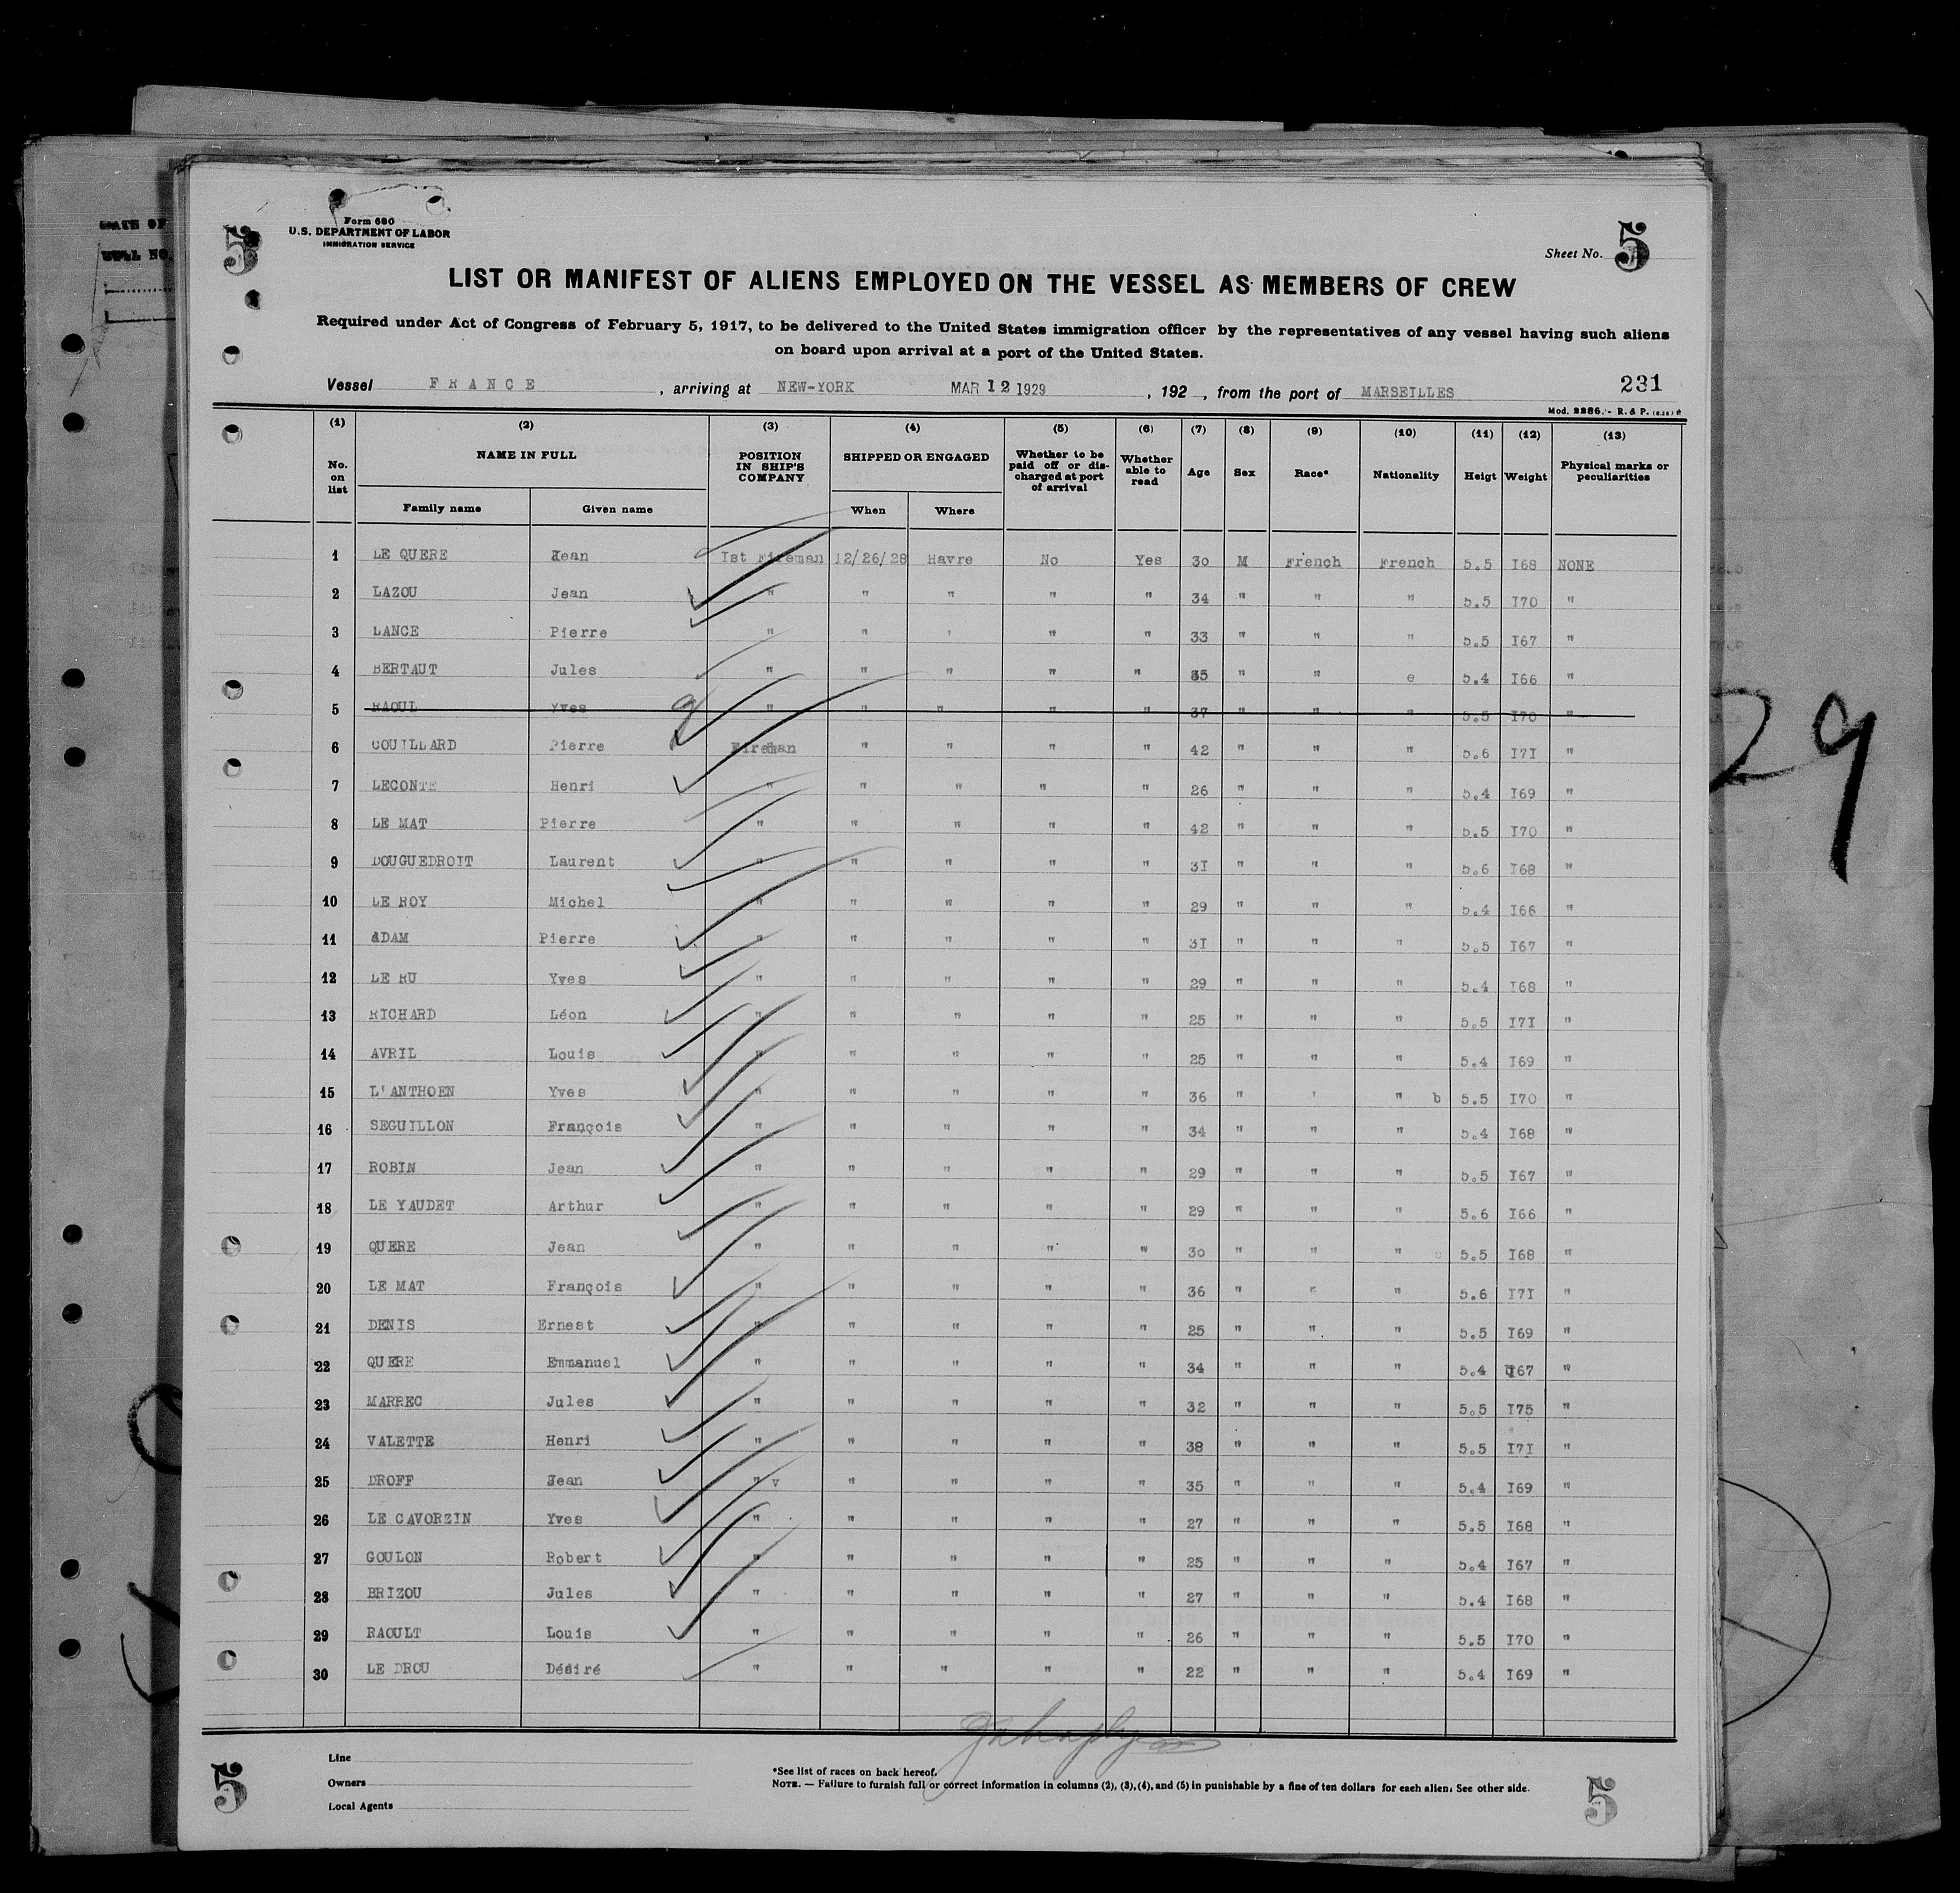 DATE OF
5
Form 680
U.S. DEPARTMENT OF LABOR
IMMIGRATION SERVICE
Sheet No. 5
LIST OR MANIFEST OF ALIENS EMPLOYED ON THE VESSEL AS MEMBERS OF CREW
Required under Act of Congress of February 5, 1917, to be delivered to the United States immigration officer by the representatives of any vessel having such aliens
on board upon arrival at a port of the United States.
Vessel FRANCE , arriving at NEW-YORK MAR 12 1929 , 192 , from the port of MARSEILLES 231
Mod. 2286. - R. & P.
(1) (2) (3) (4) (5) (6) (7) (8) (9) (10) (11) (12) (13)
No. on list NAME IN FULL POSITION IN SHIP'S COMPANY SHIPPED OR ENGAGED Whether to be paid off or discharged at port of arrival Whether able to read Age Sex Race* Nationality Heigt Weight Physical marks or peculiarities
Family name Given name When Where
1 LE QUERE Jean Ist Fireman 12/26/28 Havre No Yes 30 M French French 5.5 I68 NONE
2 LAZOU Jean " " " " " 34 " " " 5.5 I70 "
3 LANCE Pierre " " ' " " 33 " " " 5.5 I67 "
4 BERTAUT Jules " " " " " 35 " " e 5.4 I66 "
5 RAOUL Yves " " " " " 37 " " " 5.5 I70 "
6 COUILLARD Pierre Fireman " " " " 42 " " " 5.6 I7I "
7 LECONTE Henri " " " " " 26 " " " 5.4 I69 "
8 LE MAT Pierre " " " " " 42 " " " 5.5 I70 "
9 DOUGUEDROIT Laurent " " " " " 3I " " " 5.6 I68 "
10 LE ROY Michel " " " " " 29 " " " 5.4 I66 "
11 ADAM Pierre " " " " " 3I " " " 5.5 I67 "
12 LE RU Yves " " " " " 29 " " " 5.4 I68 "
13 RICHARD Léon " " " " " 25 " " " 5.5 I7I "
14 AVRIL Louis " " " " " 25 " " " 5.4 I69 "
15 L'ANTHOEN Yves " " " " " 36 " ' " b 5.5 I70 "
16 SEGUILLON François " " " " " 34 " " " 5.4 I68 "
17 ROBIN Jean " " " " " 29 " " " 5.5 I67 "
18 LE YAUDET Arthur " " " " " 29 " " " 5.6 I66 "
19 QUERE Jean " " " " " 30 " " " 5.5 I68 "
20 LE MAT François " " " " " 36 " " " 5.6 I7I "
21 DENIS Ernest " " " " " 25 " " " 5.5 I69 "
22 QUERE Emmanuel " " " " " 34 " " " 5.4 I67 "
23 MARREC Jules " " " " " 32 " " " 5.5 I75 "
24 VALETTE Henri " " " " " 38 " " " 5.5 I7I "
25 DROFF Jean " v " " " " 35 " " " 5.4 I69 "
26 LE CAVORZIN Yves " " " " " 27 " " " 5.5 I68 "
27 GOULON Robert " " " " " 25 " " " 5.4 I67 "
28 BRIZOU Jules " " " " " 27 " " " 5.4 I68 "
29 RAOULT Louis " " " " " 26 " " " 5.5 I70 "
30 LE DROU Désiré " " " " " 22 " " " 5.4 I69 "
29
Line
Owners
Local Agents
*See list of races on back hereof.
NOTE. — Failure to furnish full or correct information in columns (2), (3), (4), and (5) in punishable by a fine of ten dollars for each alien. See other side.
5
5